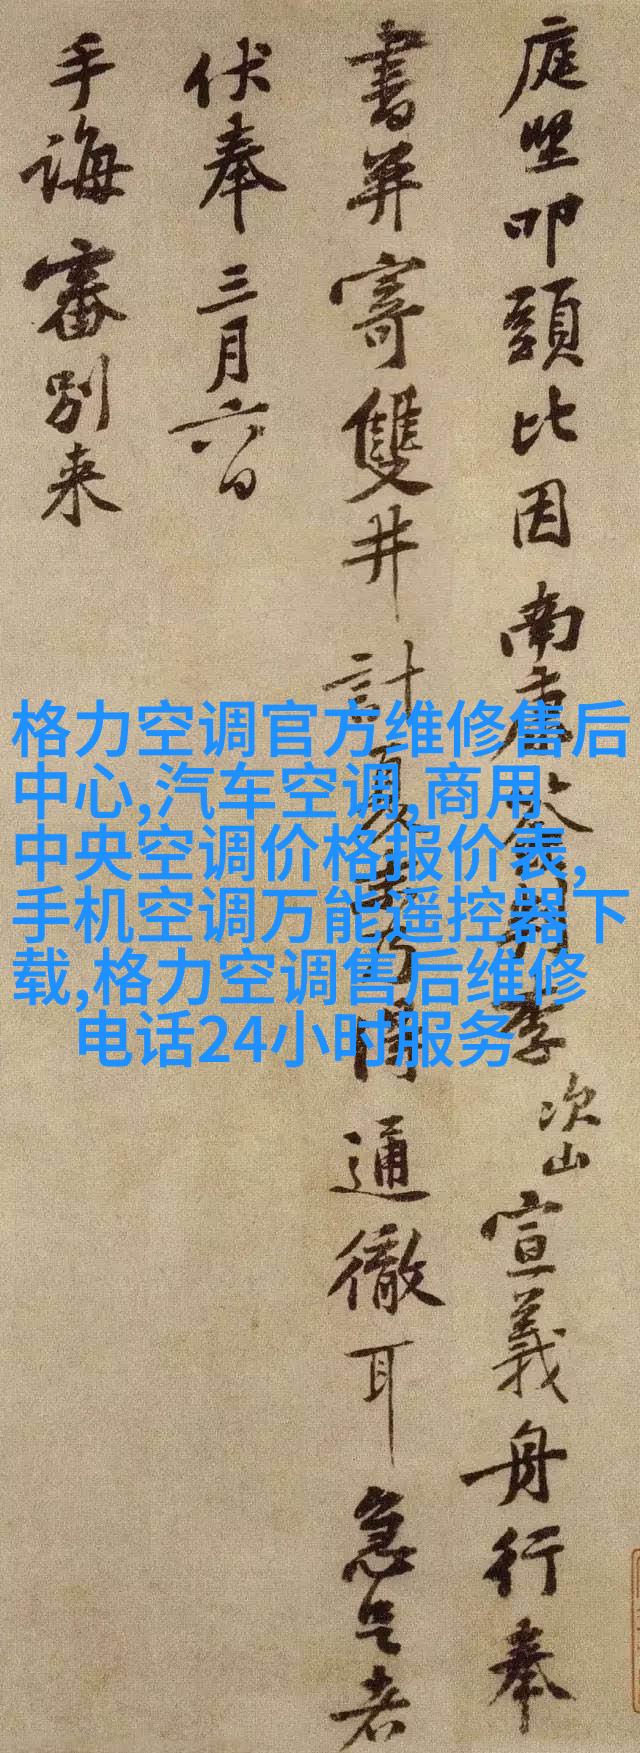 庭堅叩頭比因南康簽判李次山宣義舟行奉
書并寄雙井計夏末可得通徹耳急足者
伏奉三月六日
手誨審別来
格力空调官方维修售后
中心,汽车空调,商用
中央空调价格报价表,
手机空调万能遥控器下
载,格力空调售后维修
电话24小时服务